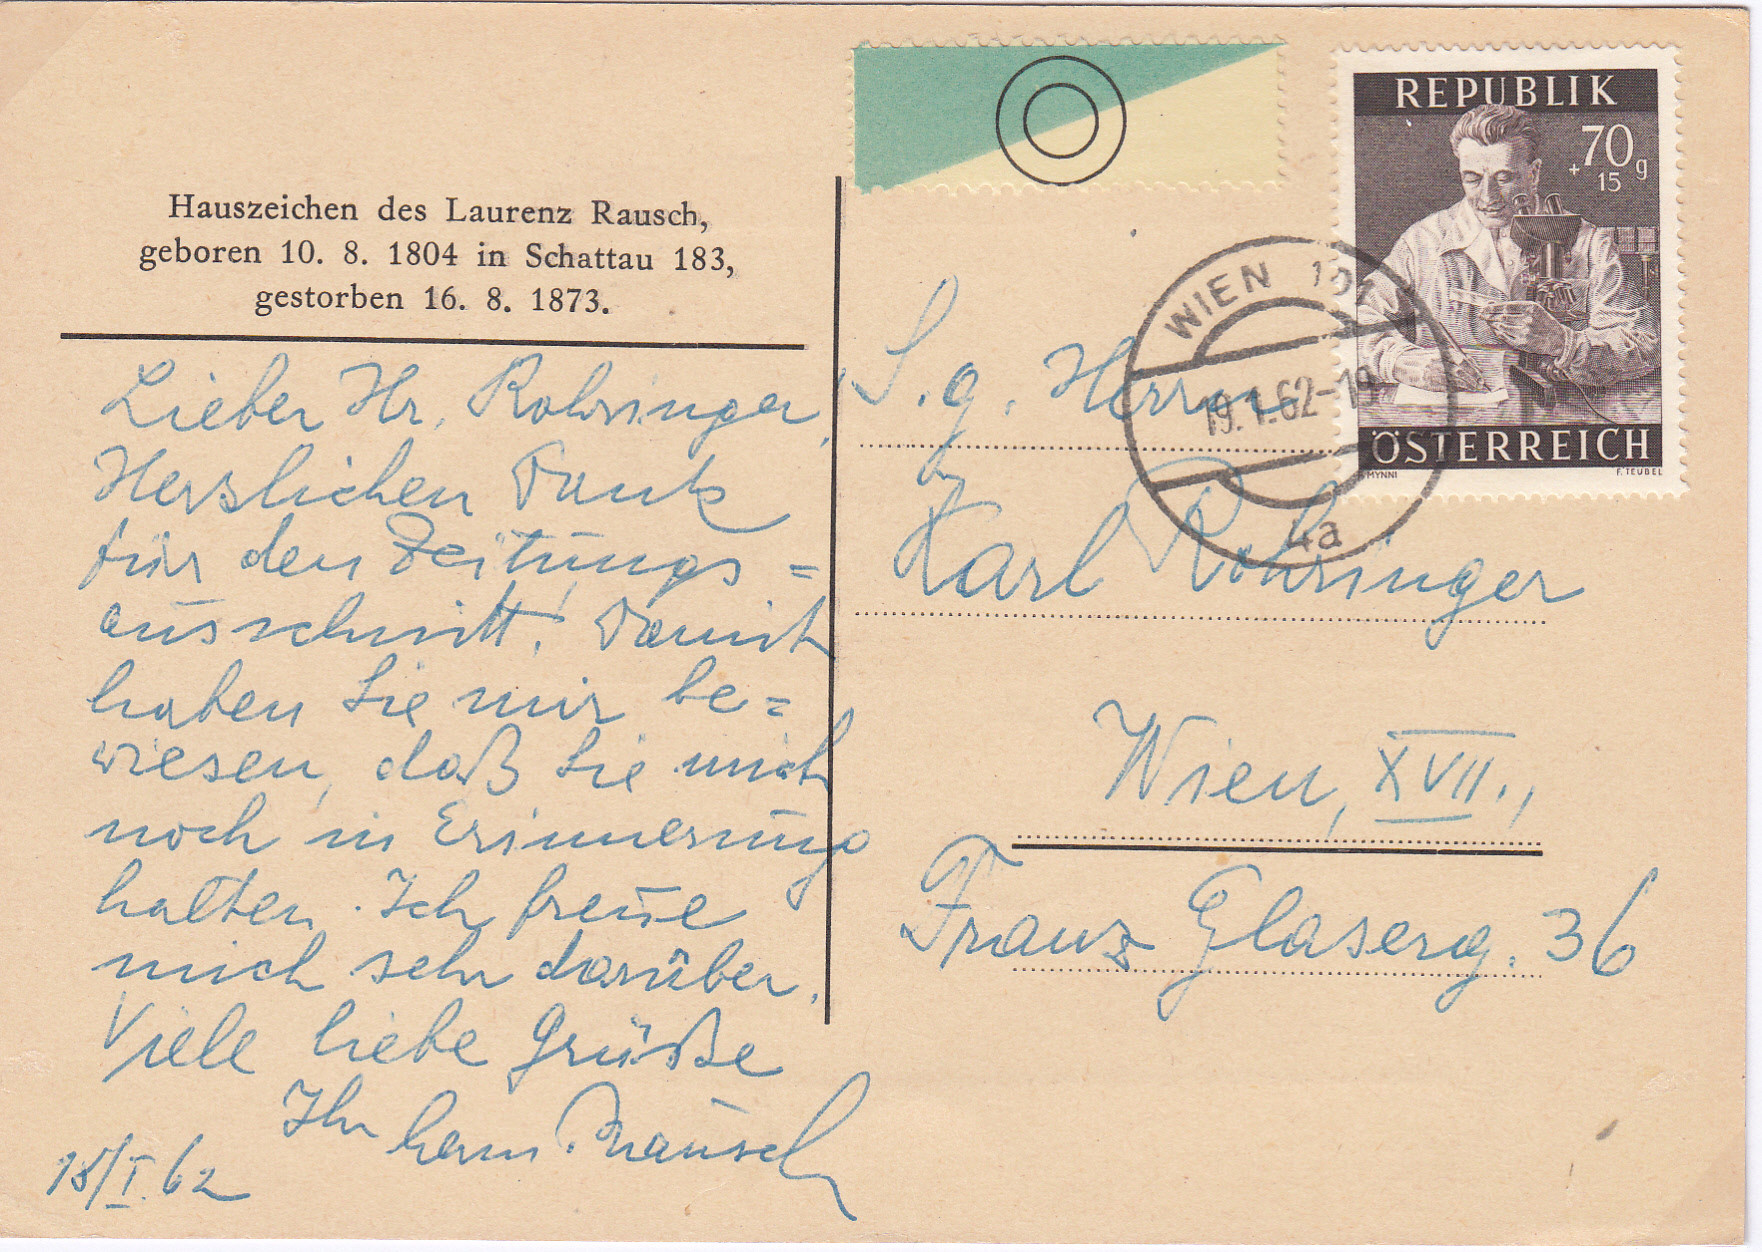 Hauszeichen des Laurenz Rausch,
geboren 10. 8. 1804 in Schattau 183,
gestorben 16. 8. 1873.
Lieber Hr. Rohringer,
Herzlichen Dank
für den Zeitungs=
ausschnitt! Damit
haben Sie mir be=
wiesen, daß Sie mich
noch in Erinnerung
halten. Ich freue
mich sehr darüber.
Viele liebe Grüße
Ihr Rausch
18/I.62
REPUBLIK
70 g
+ 15
ÖSTERREICH
F. TEUBEL
WIEN 101
19.1.62-19
4a
S. g. Herrn
Karl Rohringer
Wien, XVII.,
Franz Glaserg. 36